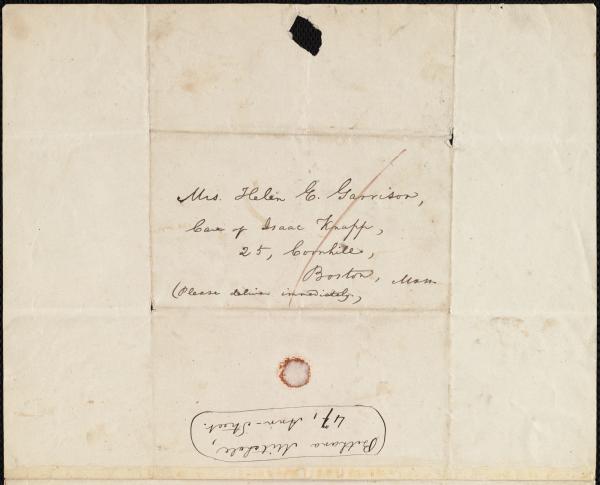 Mrs. Helen E. Garrison,
Care of Isaac Knapp,
25, Cornhill,
Boston, Mass
(Please deliver immediately,)
Mitchell,
47, Ann-Street.